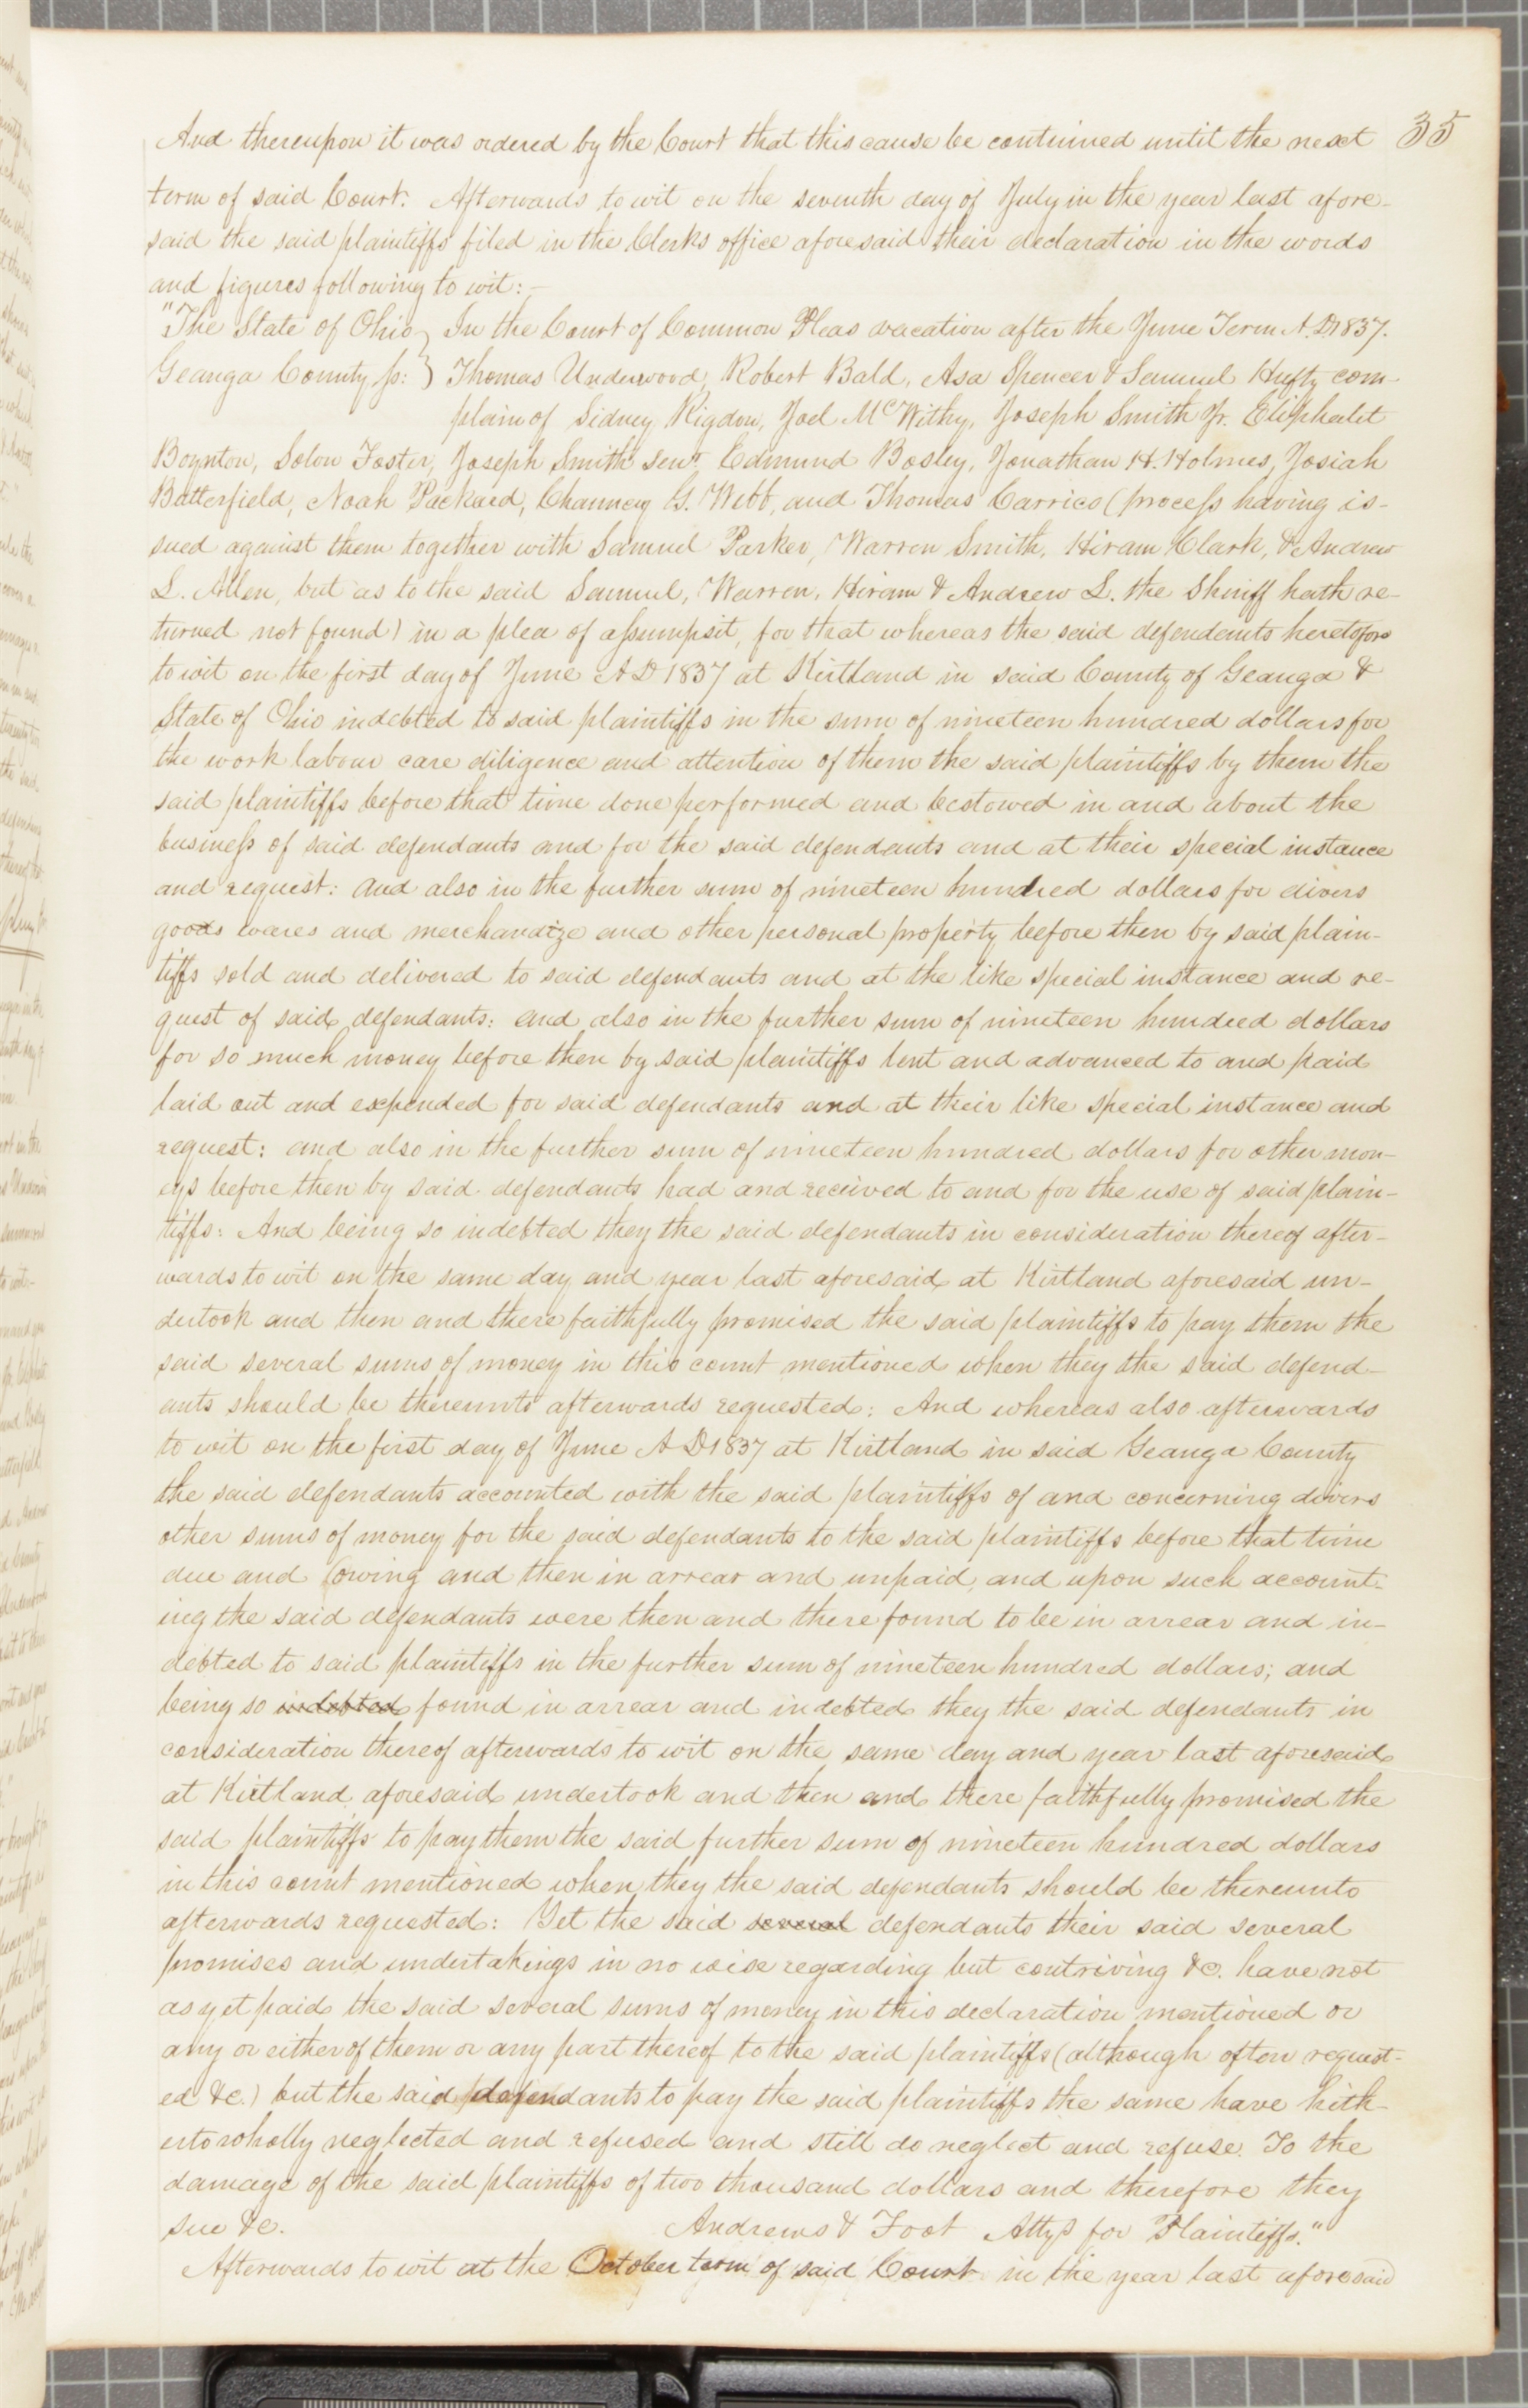 35
And thereupon it was ordered by the Court that this cause be continued until the next
term of said Court. Afterwards to wit on the seventh day of July in the year last afore-
said the said plaintiffs filed in the Clerks office aforesaid their declaration in the words
and figures following to wit:-
"The State of Ohio } In the Court of Common Pleas vacation after the June Term A.D. 1837.
Geauga County ss: } Thomas Underwood, Robert Bald, Asa Spencer & Samuel Hufty com-
plain of Sidney Rigdon, Joel McWithy, Joseph Smith Jr. Eliphalet
Boynton, Solon Foster, Joseph Smith Senr. Edmund Bosley, Jonathan H. Holmes, Josiah
Butterfield, Noah Packard, Chauncey G. Webb, and Thomas Carrico (process having is-
sued against them together with Samuel Parker, Warren Smith, Hiram Clark, & Andrew
L. Allen, but as to the said Samuel, Warren, Hiram & Andrew L. the Sheriff hath re-
turned not found) in a plea of assumpsit, for that whereas the said defendants heretofore
to wit on the first day of June A D 1837 at Kirtland in said County of Geauga &
State of Ohio indebted to said plaintiffs in the sum of nineteen hundred dollars for
the work labour care diligence and attention of them the said plaintiffs by them the
said plaintiffs before that time done performed and bestowed in and about the
business of said defendants and for the said defendants and at their special instance
and request: and also in the further sum of nineteen hundred dollars for divers
goods wares and merchandize and other personal property before then by said plain-
tiffs sold and delivered to said defendants and at the like special instance and re-
quest of said defendants: and also in the further sum of nineteen hundred dollars
for so much money before then by said plaintiffs lent and advanced to and paid
laid out and expended for said defendants and at their like special instance and
request: and also in the further sum of nineteen hundred dollars for other mon-
eys before then by said defendants had and received to and for the use of said plain-
tiffs: And being so indebted they the said defendants in consideration thereof after-
wards to wit on the same day and year last aforesaid at Kirtland aforesaid un-
dertook and then and there faithfully promised the said plaintiffs to pay them the
said several sums of money in this count mentioned when they the said defend-
ants should be thereunto afterwards requested: And whereas also afterwards
to wit on the first day of June A D 1837 at Kirtland in said Geauga County
the said defendants accounted with the said plaintiffs of and concerning divers
other sums of money for the said defendants to the said plaintiffs before that time
due and owing and then in arrear and unpaid, and upon such account-
ing the said defendants were then and there found to be in arrear and in-
debted to said plaintiffs in the further sum of nineteen hundred dollars; and
being so indebted found in arrear and indebted they the said defendants in
consideration thereof afterwards to wit on the same day and year last aforesaid
at Kirtland aforesaid undertook and then and there faithfully promised the
said plaintiffs to pay them the said further sum of nineteen hundred dollars
in this count mentioned when they the said defendants should be thereunto
afterwards requested: Yet the said several defendants their said several
promises and undertakings in no wise regarding but contriving &c. have not
as yet paid the said several sums of money in this declaration mentioned or
any or either of them or any part thereof to the said plaintiffs (although often request-
ed &c.) but the said defendants to pay the said plaintiffs the same have hith-
erto wholly neglected and refused and still do neglect and refuse. To the
damage of the said plaintiffs of two thousand dollars and therefore they
sue &c. Andrews & Foot Attys for Plaintiffs."
Afterwards to wit at the October term of said Court in the year last aforesaid